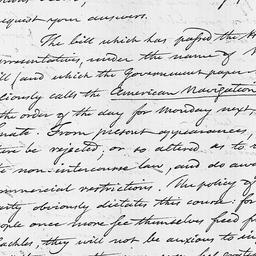 request your answers.
The bill which has passed the
under the name of
and which the Government paper
calls the American Navigation
the order of the day for Monday next,
From present appearances,
be rejected, or so altered as to
non-intercourse law, and do
commercial restrictions. The policy of
obviously dictates this course: for
once more fee themselves freed
they will not be anxious to